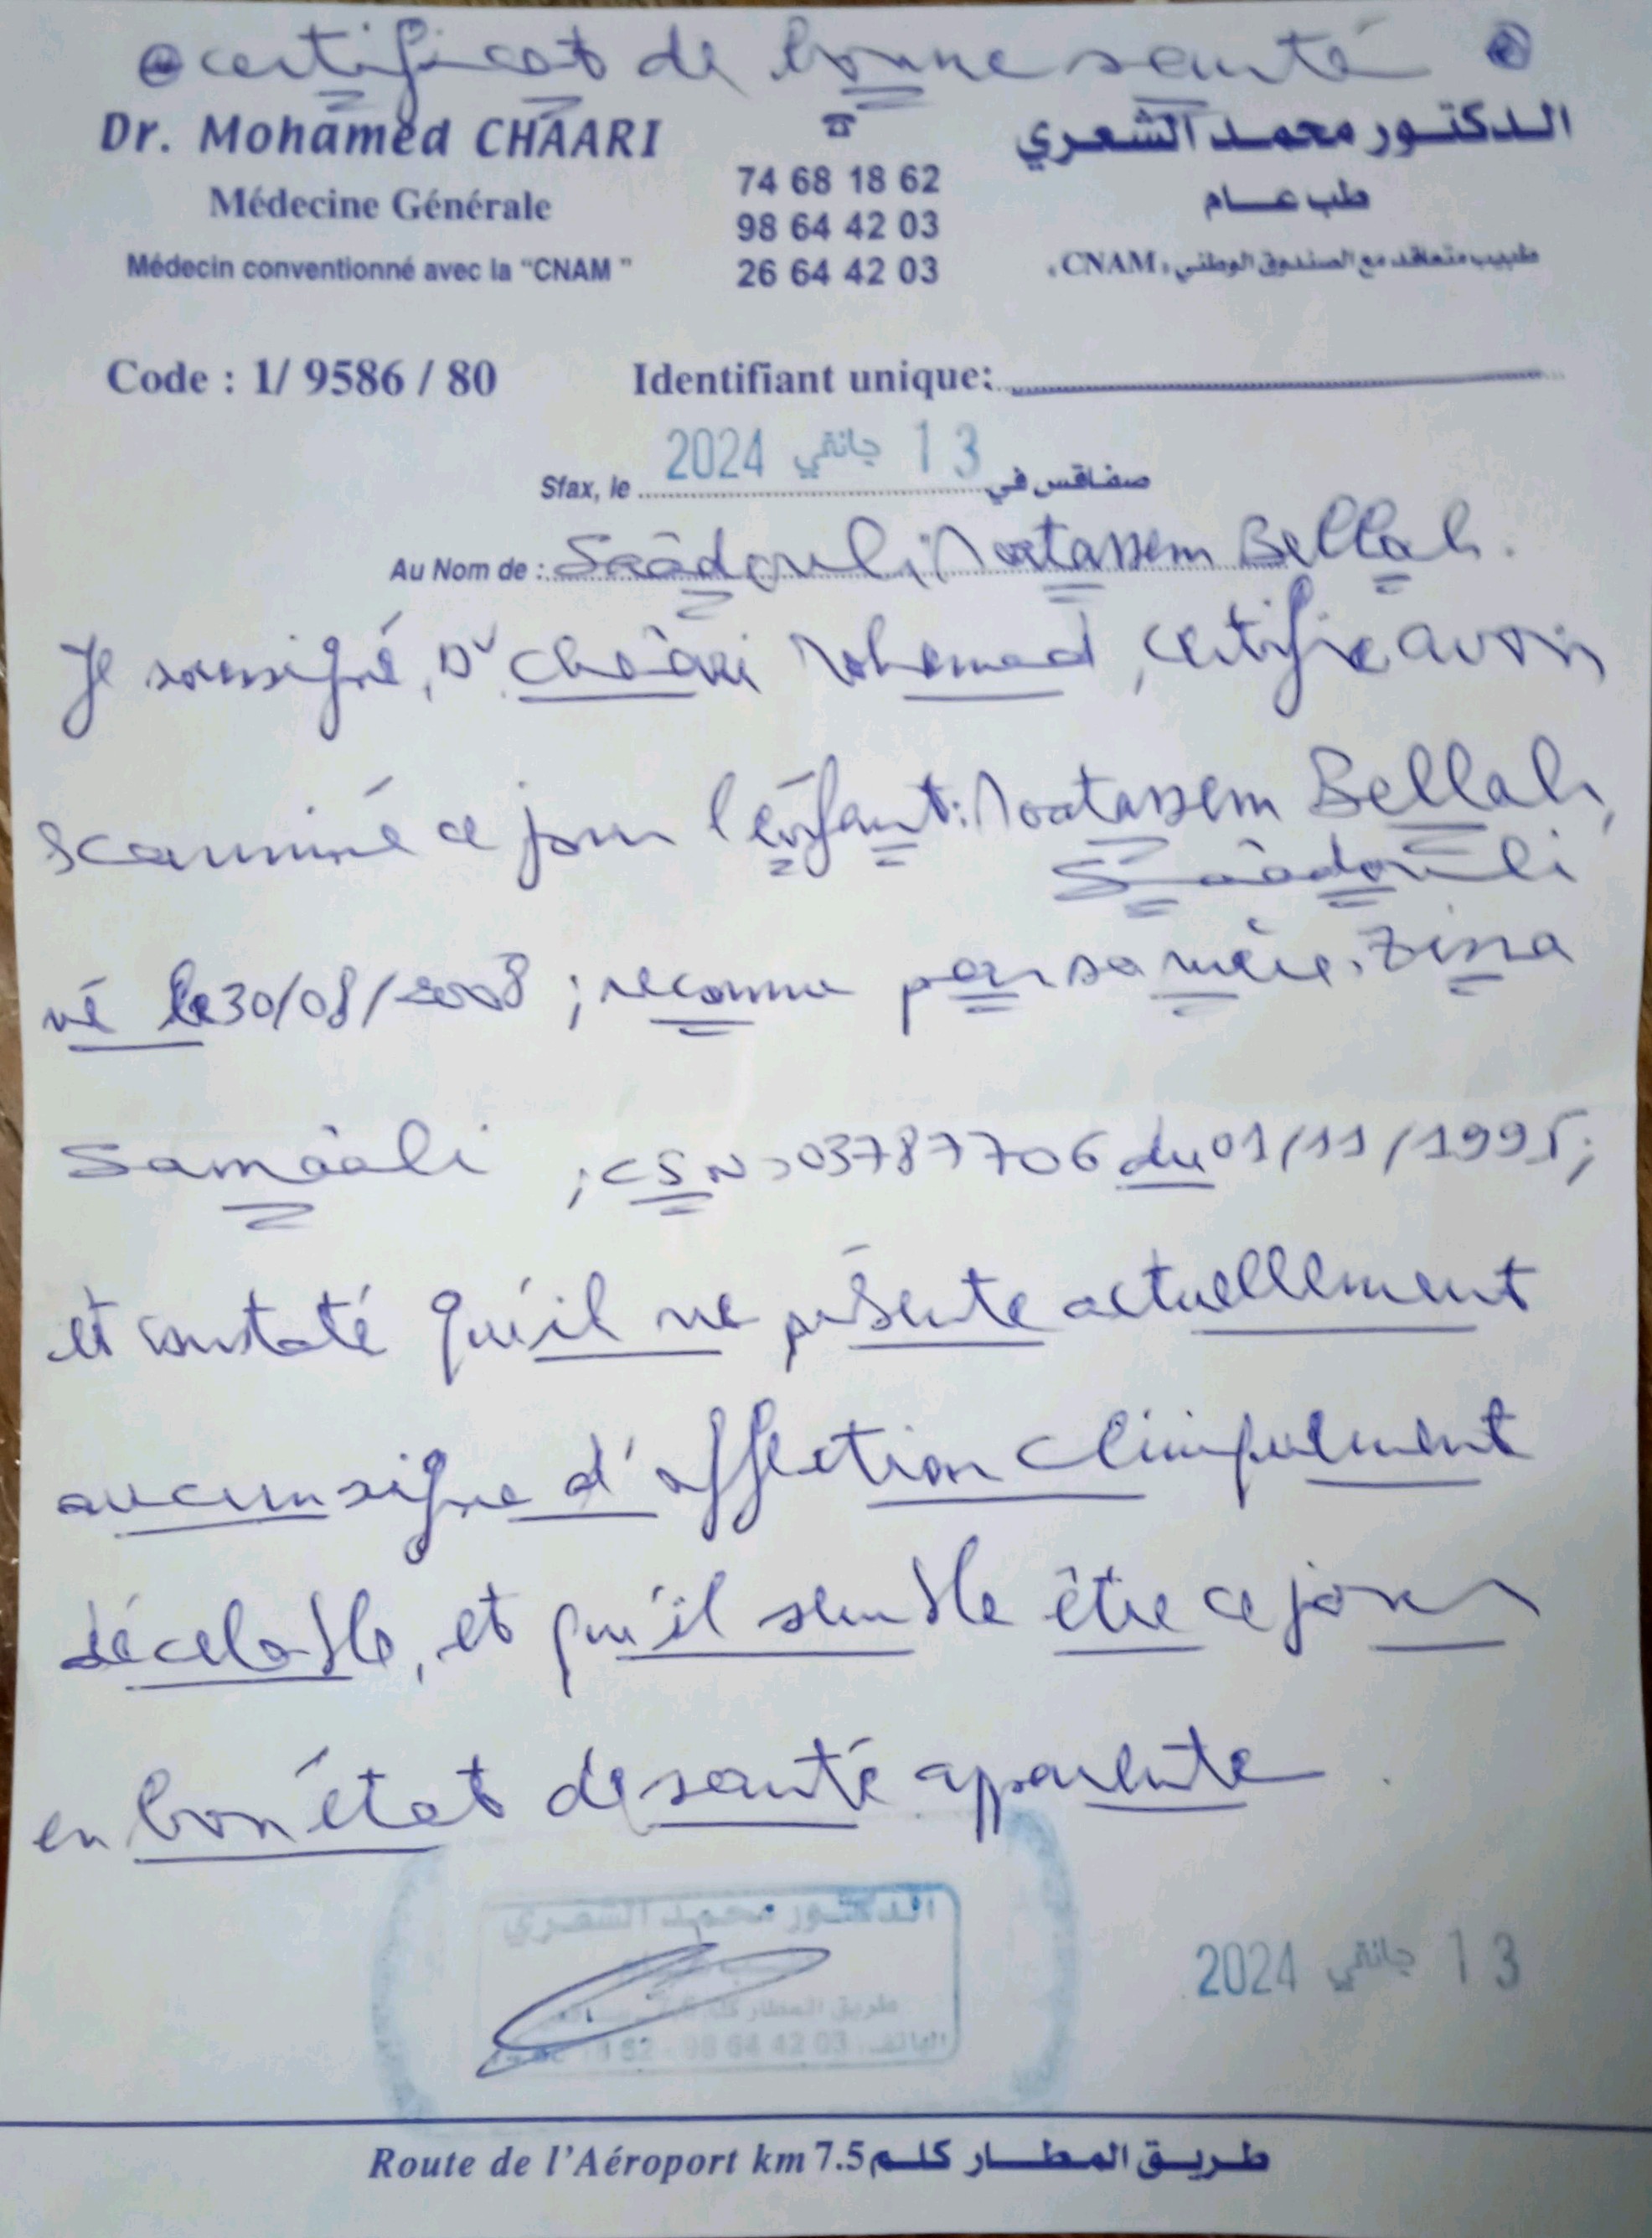 certificat de bonne santé
Dr. Mohamed CHAARI
Médecine Générale
Médecin conventionné avec la "CNAM "
74 68 18 62
98 64 42 03
26 64 42 03
الدكتور محمد الشعري
طب عام
طبيب متعاقد مع الصندوق الوطني «CNAM»
Code : 1/ 9586 / 80 Identifiant unique:
Sfax, le 13 جانفي 2024 صفاقس في
Au Nom de : Saâdouli Moatassem Bellah.
Je soussigné, Dr Chaâri Mohamed, certifie avoir
examiné ce jour l'enfant: Moatassem Bellah,
Saâdouli
né le 30/08/2008 ; reconnu par sa mère. Zina
Samââli ; CIN: 03787706 du 01/11/1995;
et constaté qu'il ne présente actuellement
aucun signe d'affection cliniquement
décelable, et qu'il semble être ce jour
en bon état de santé apparente.
الدكتور محمد الشعري
طريق المطار كلم 7.5
الهاتف: 98 64 42 03
13 جانفي 2024
Route de l'Aéroport km 7.5 طريق المطار كلم